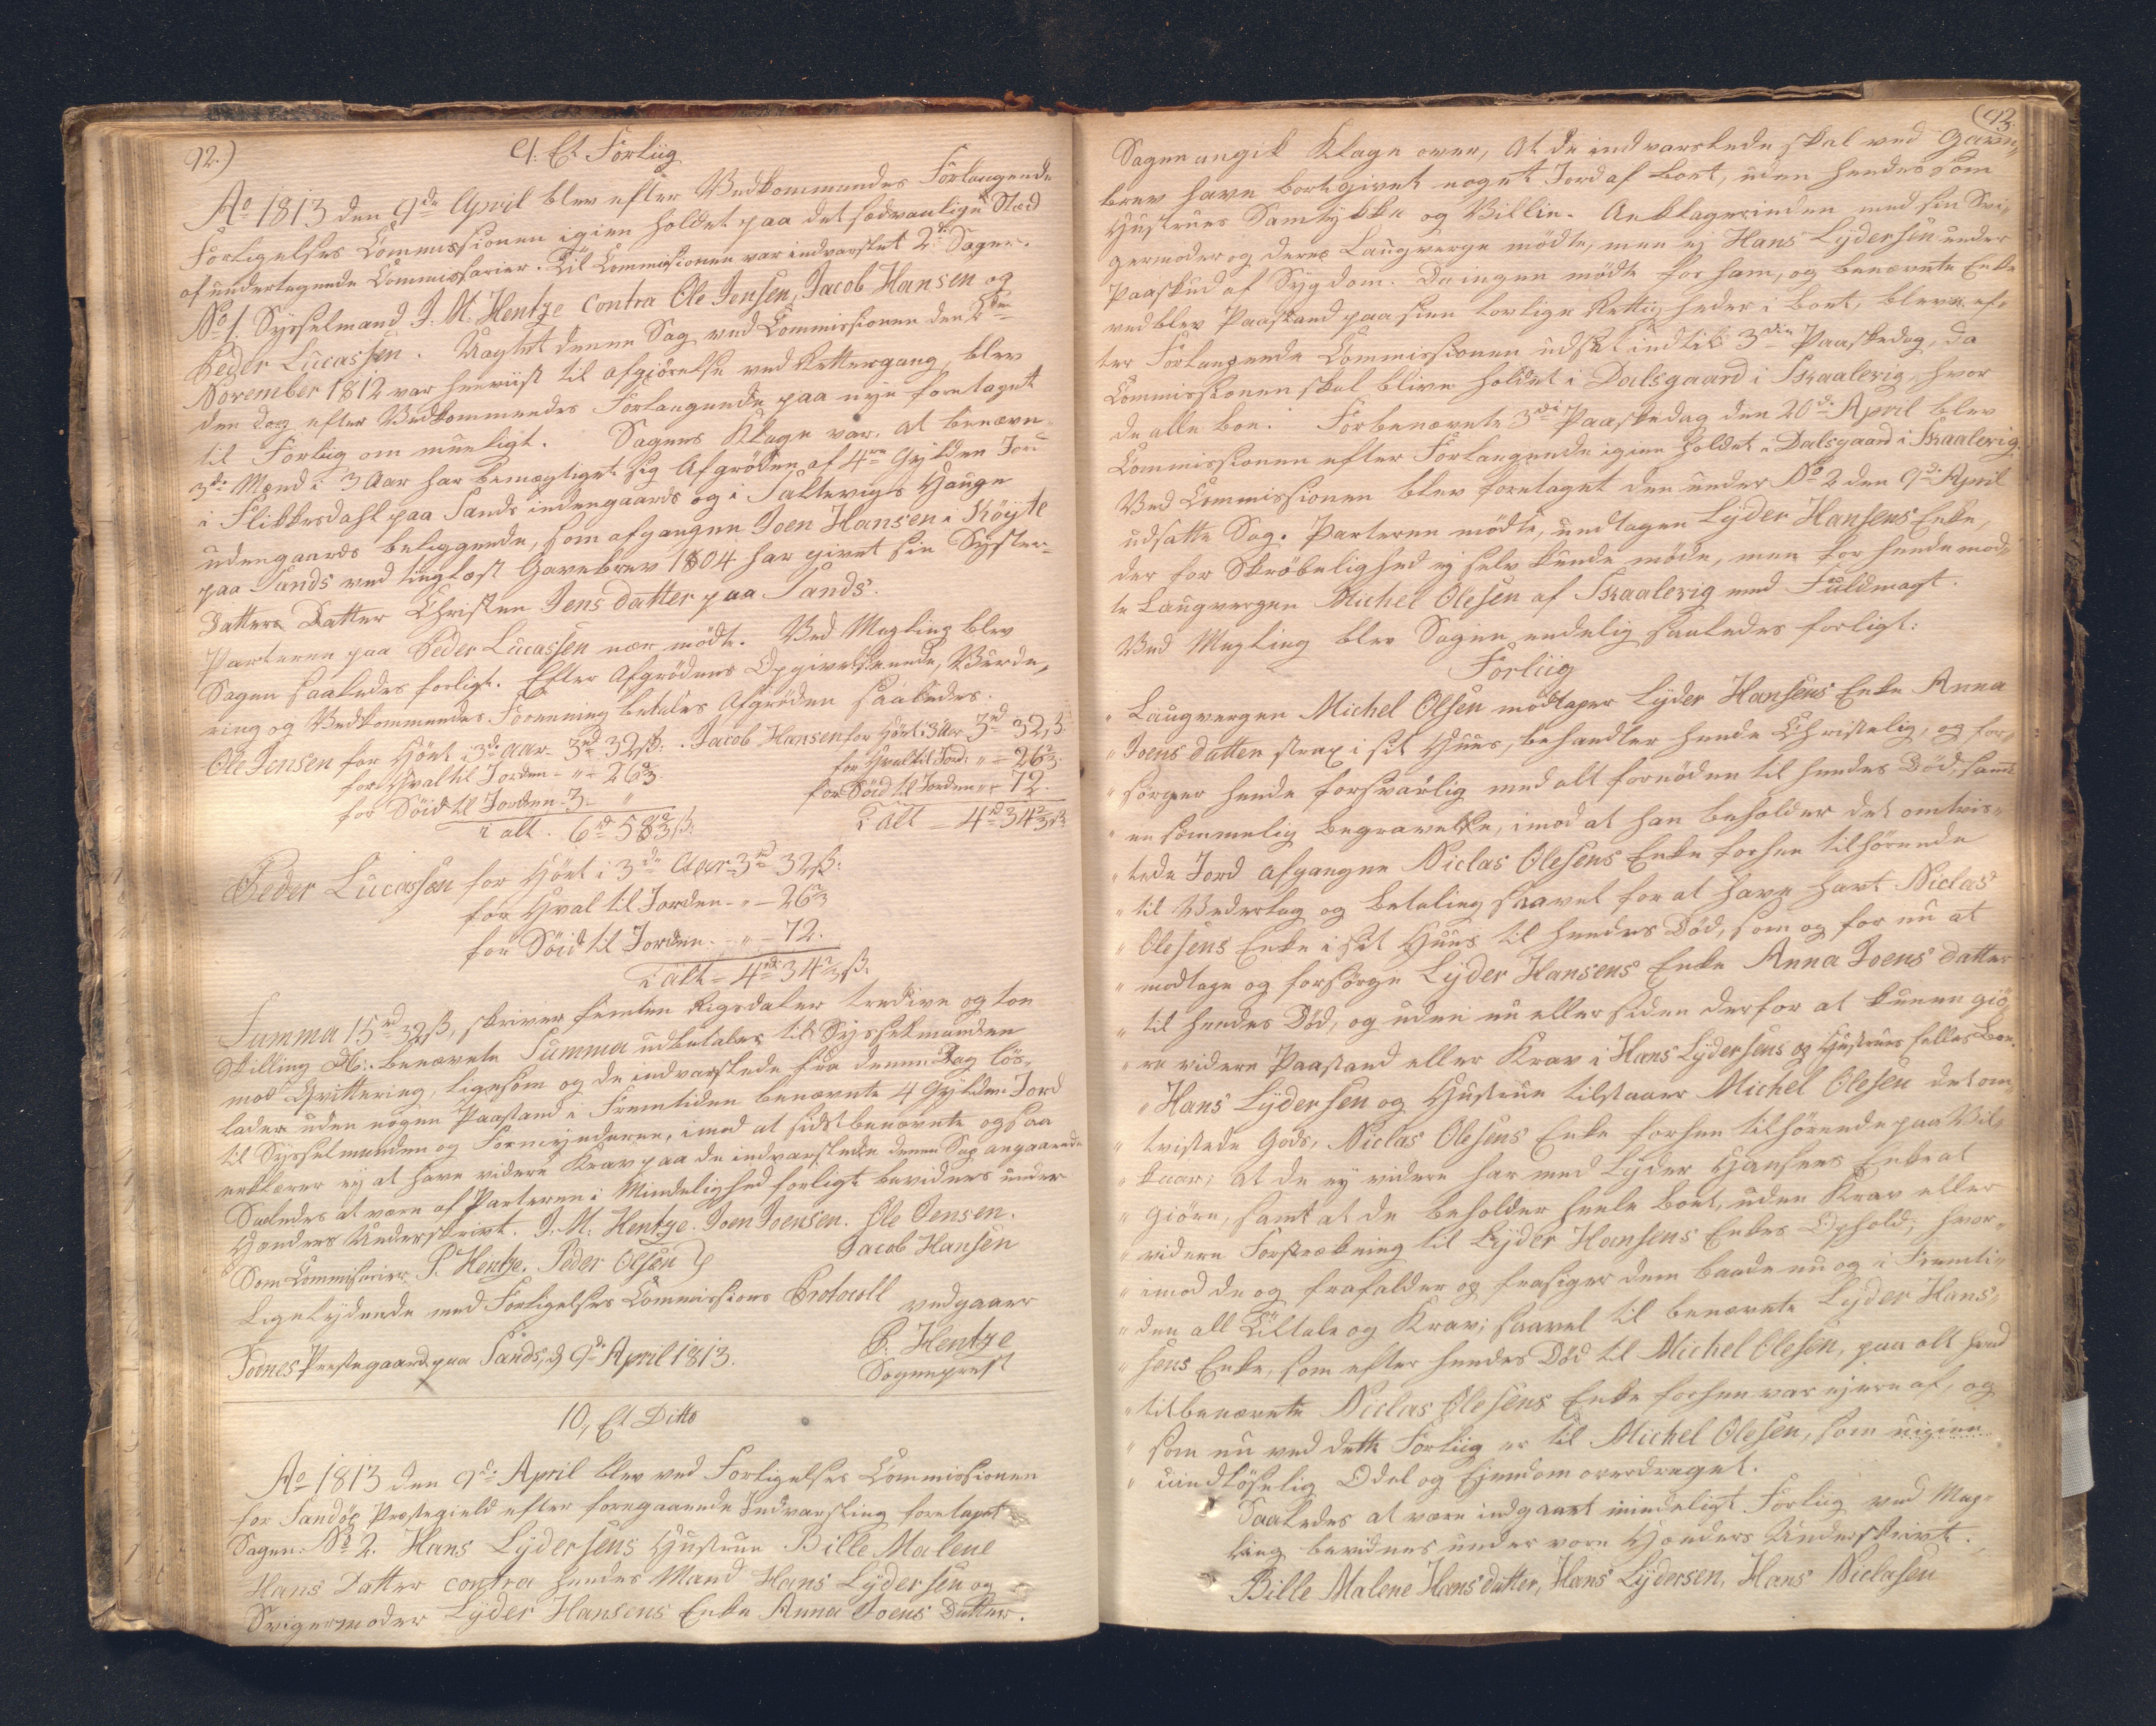 92.)
9. Et Forliig
Ao 1813 den 9de April blev efter Vedkommendes Forlangende
Forligelses Commissionen igien holdet paa det sædvanlige Stæd
af undertegnede Commissarier. Til Commissionen var indvarslet 2de Sager.
No 1. Sysselmand J. M. Hentze contra Ole Jensen, Jacob Hansen og
Peder Lucassen. Uagtet denne Sag ved Commissionen den 2den
November 1812 var henviist til afgiørelse ved Rettergang, blev
den dog efter Vedkommendes Forlangende paa nye foretaget
til Forlig om mueligt. Sagens Klage var, at benævn-
3de Mænd i 3 Aar har bemægtiget sig Afgrøden af 4re Gylden Jord
i Slikkesdahl paa Sands indengaards og i Saltevigs Hauge
udengaards beliggende, som afgangne Joen Hansen i Köyte
paa Sands ved tinglæst Gavebrev 1804 har givet sin Syster-
datters Datter Christen Jens datter paa Sands.
Parterne paa Peder Lucassen nær mødte. Ved Megling blev
Sagen saaledes forligt. Efter Afgrødens Opgivelse, Vurde-
ring og Vedkommendes Forening betales Afgrøden saaledes.
Ole Jensen for Høet i 3de Aar 3rd 32ß. Jacob Hansen for Høet i 3 Aar 3rd 32ß.
for Hval til Jorden - " - 26⅔. for Hval til Jord. " = 26⅔.
for Söid til Jorden 3. " for Söid til Jorden " - 72.
i alt. 6rd 58⅔ß. i alt = 4rd 34⅔ß
Peder Lucassen for Høet i 3de Aar 3rd 32ß.
for Hval til Jorden - " - 26⅔
for Söid til Jorden. - " - 72.
i alt = 4rd 34⅔ß.
Summa 15rd 32ß, skriver femten Rigsdaler tredive og toe
Skilling D: benævnte Summa udbetales til Sysselmanden
mod Qvittering, ligesom og de indvarslede fra denne Dag løs-
lader uden nogen Paastand i Fremtiden benævnte 4 Gylden Jord
til Sysselmanden og Formynderen, imod at sidstbenævnte ogsaa
erklærer ej at have videre Krav paa de indvarslede denne Sag angaaende
Saaledes at være af Parterne i Mindelighed forligt bevidnes under
Hænders Underskrivt. J. M. Hentze. Joen Joensen. Ole Jensen.
Som Commissarier P. Hentze. Peder Olsen Jacob Hansen
Ligelydende med Forligelses Commissions Protocoll vedgaaer
Todnes Præstegaard paa Sands, d 9de April 1813. P. Hentze
Sognepræst
10, Et Ditto
Ao 1813 den 9de April blev ved Forligelses Commissionen
for Sandöe Præstegield efter foregaaende Indvarsling foretaget
Sagen: No 2. Hans Lydersens Hustrue Bille Malene
Hans Datter contra hendes Mand Hans Lydersen og
Svigermoder Lyder Hansens Enke Anna Joens Datter.
(93.
Sagen angik Klage over, at de indvarslede skal ved Gave-
brev have bortgivet noget Jord af Boet, uden hendes som
Hustrues Samtykke og Villie. Anklagerinden med sin Svi-
germoder og deres Laugverge mødte, men ej Hans Lydersen under
Paaskud af Sygdom. Da ingen mødte for ham, og benævnte Enke
vedblev Paastand paa sine lovlige Rettigheder i Boet, blev ef-
ter Forlangende Commissionen udsat indtil 3die Paaskedag, da
Commissionen skal blive holdet i Dalsgaard i Skaalevig, hvor
de alle boe. Forbenævnte 3die Paaskedag den 20de April blev
Commissionen efter Forlangende igien holdet i Dalsgaard i Skaalevig.
Ved Commissionen blev foretaget den under No 2 den 9de April
udsatte Sag. Parterne mødte, undtagen Lyder Hansens Enke,
der for Skrøbelighed ej selv kunde møde, men for hende mød-
te Laugvergen Michel Olesen af Skaalevig med Fuldmagt.
Ved Megling blev Sagen endelig saaledes forligt:
Forliig
" Laugvergen Michel Olsen modtager Lyder Hansens Enke Anna
" Joens datter strax i sit Huus, behandler hende Christelig, og for-
" sørger hende forsvarlig med alt fornøden til hendes Død, samt
" en sømmelig Begravelse, imod at han beholder det omtvis-
" tede Jord afgangne Niclas Olesens Enke forhen tilhørende
" til Vederlag og Betaling saavel for at have havt Niclas
" Olesens Enke i sit Huus til hendes Død, som og for nu at
" modtage og forsørge Lyder Hansens Enke Anna Joens datter
" til hendes Død, og uden nu eller siden derfor at kunne giö-
" re videre Paastand eller Krav i Hans Lydersens og Hustrues fælles Boe.
" Hans Lydersen og Hustrue tilstaaer Michel Olesen det om-
" tvistede Gods, Niclas Olesens Enke forhen tilhørende paa Vil-
" kaar, at de ej videre har med Lyder Hansens Enke at
" giöre, samt at de beholder heele Boet, uden Krav eller
" videre Forstrækning til Lyder Hansens Enkes Ophold; hvor-
" imod de og frafalder og frasiger dem baade nu og i Fremti-
" den all Tiltale og Krav; saavel til benævnte Lyder Han-
" sens Enke, som efter hendes Død til Michel Olesen, paa alt hvad
" titbenævnte Niclas Olesens Enke forhen var ejere af, og
" som nu ved dette Forliig er til Michel Olesen, som uigien-
" uindløselig Odel og Ejendom overdraget.
Saaledes at være indgaaet mindeligt Forliig ved Meg-
ling bevidnes under vore Hænders Underskrivt.
Bille Malene Hansdatter, Hans Lydersen, Hans Niclasen